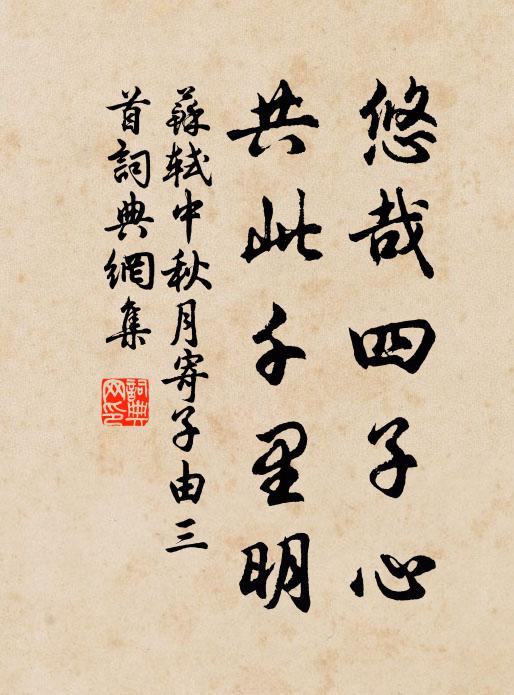 悠哉四子心
共此千里明
蘇軾中秋月寄子由三
首詞典網集
詞典
网印